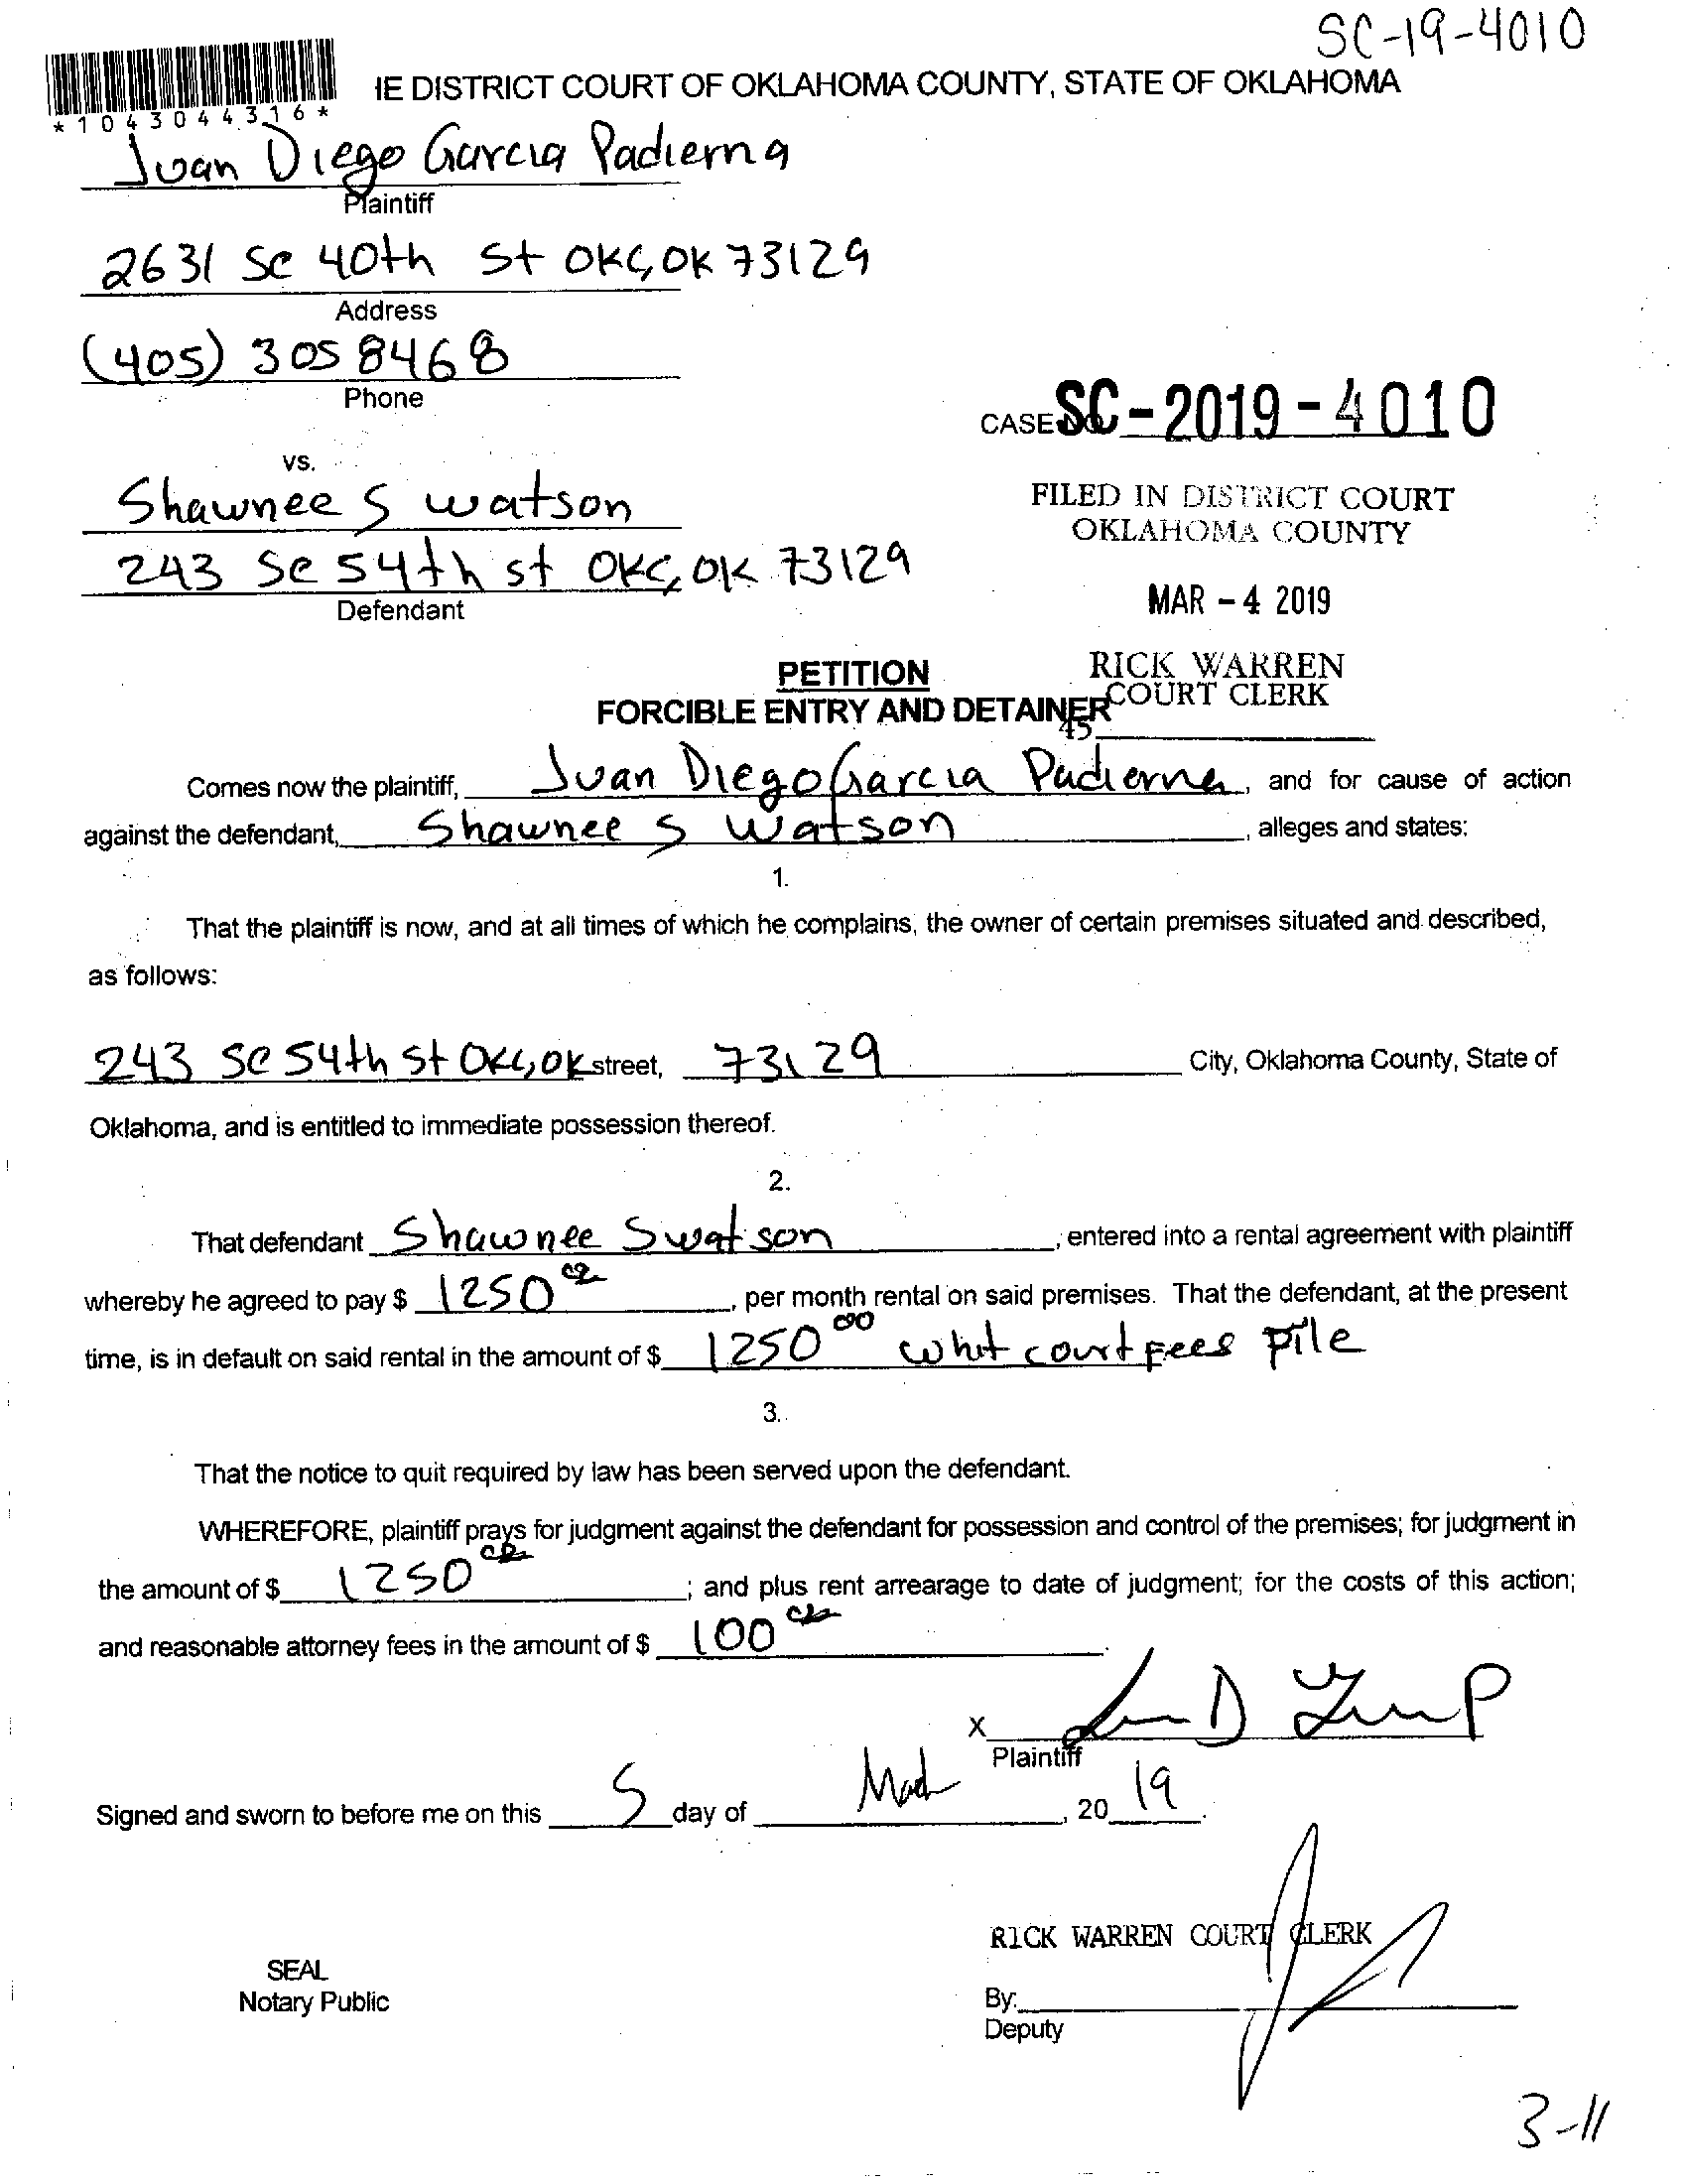 SC-19-4010
IE DISTRICT COURT OF OKLAHOMA COUNTY, STATE OF OKLAHOMA
*1043044316*
Juan Diego Garcia Padierna
Plaintiff
2631 Se 40th St OKC, OK 73129
Address
(405) 305 8468
Phone
CASE NO SC-2019-4010
vs.
Shawnee S watson
FILED IN DISTRICT COURT
OKLAHOMA COUNTY
243 Se 54th st OKC, OK 73129
Defendant
MAR - 4 2019
PETITION
RICK WARREN
COURT CLERK
FORCIBLE ENTRY AND DETAINER
45
Comes now the plaintiff, Juan Diego Garcia Padierna, and for cause of action
against the defendant, Shawnee S Watson, alleges and states:
1.
That the plaintiff is now, and at all times of which he complains, the owner of certain premises situated and described,
as follows:
243 Se 54th St OKC, OK street, 73129 City, Oklahoma County, State of
Oklahoma, and is entitled to immediate possession thereof.
2.
That defendant Shawnee S watson, entered into a rental agreement with plaintiff
whereby he agreed to pay $ 1250 00, per month rental on said premises. That the defendant, at the present
time, is in default on said rental in the amount of $ 1250 00 whit court fees pile
3.
That the notice to quit required by law has been served upon the defendant.
WHEREFORE, plaintiff prays for judgment against the defendant for possession and control of the premises; for judgment in
the amount of $ 1250 00; and plus rent arrearage to date of judgment; for the costs of this action;
and reasonable attorney fees in the amount of $ 100 00.
X
Plaintiff
Signed and sworn to before me on this 5 day of March, 20 19.
RICK WARREN COURT CLERK
SEAL
Notary Public
By:
Deputy
3-11